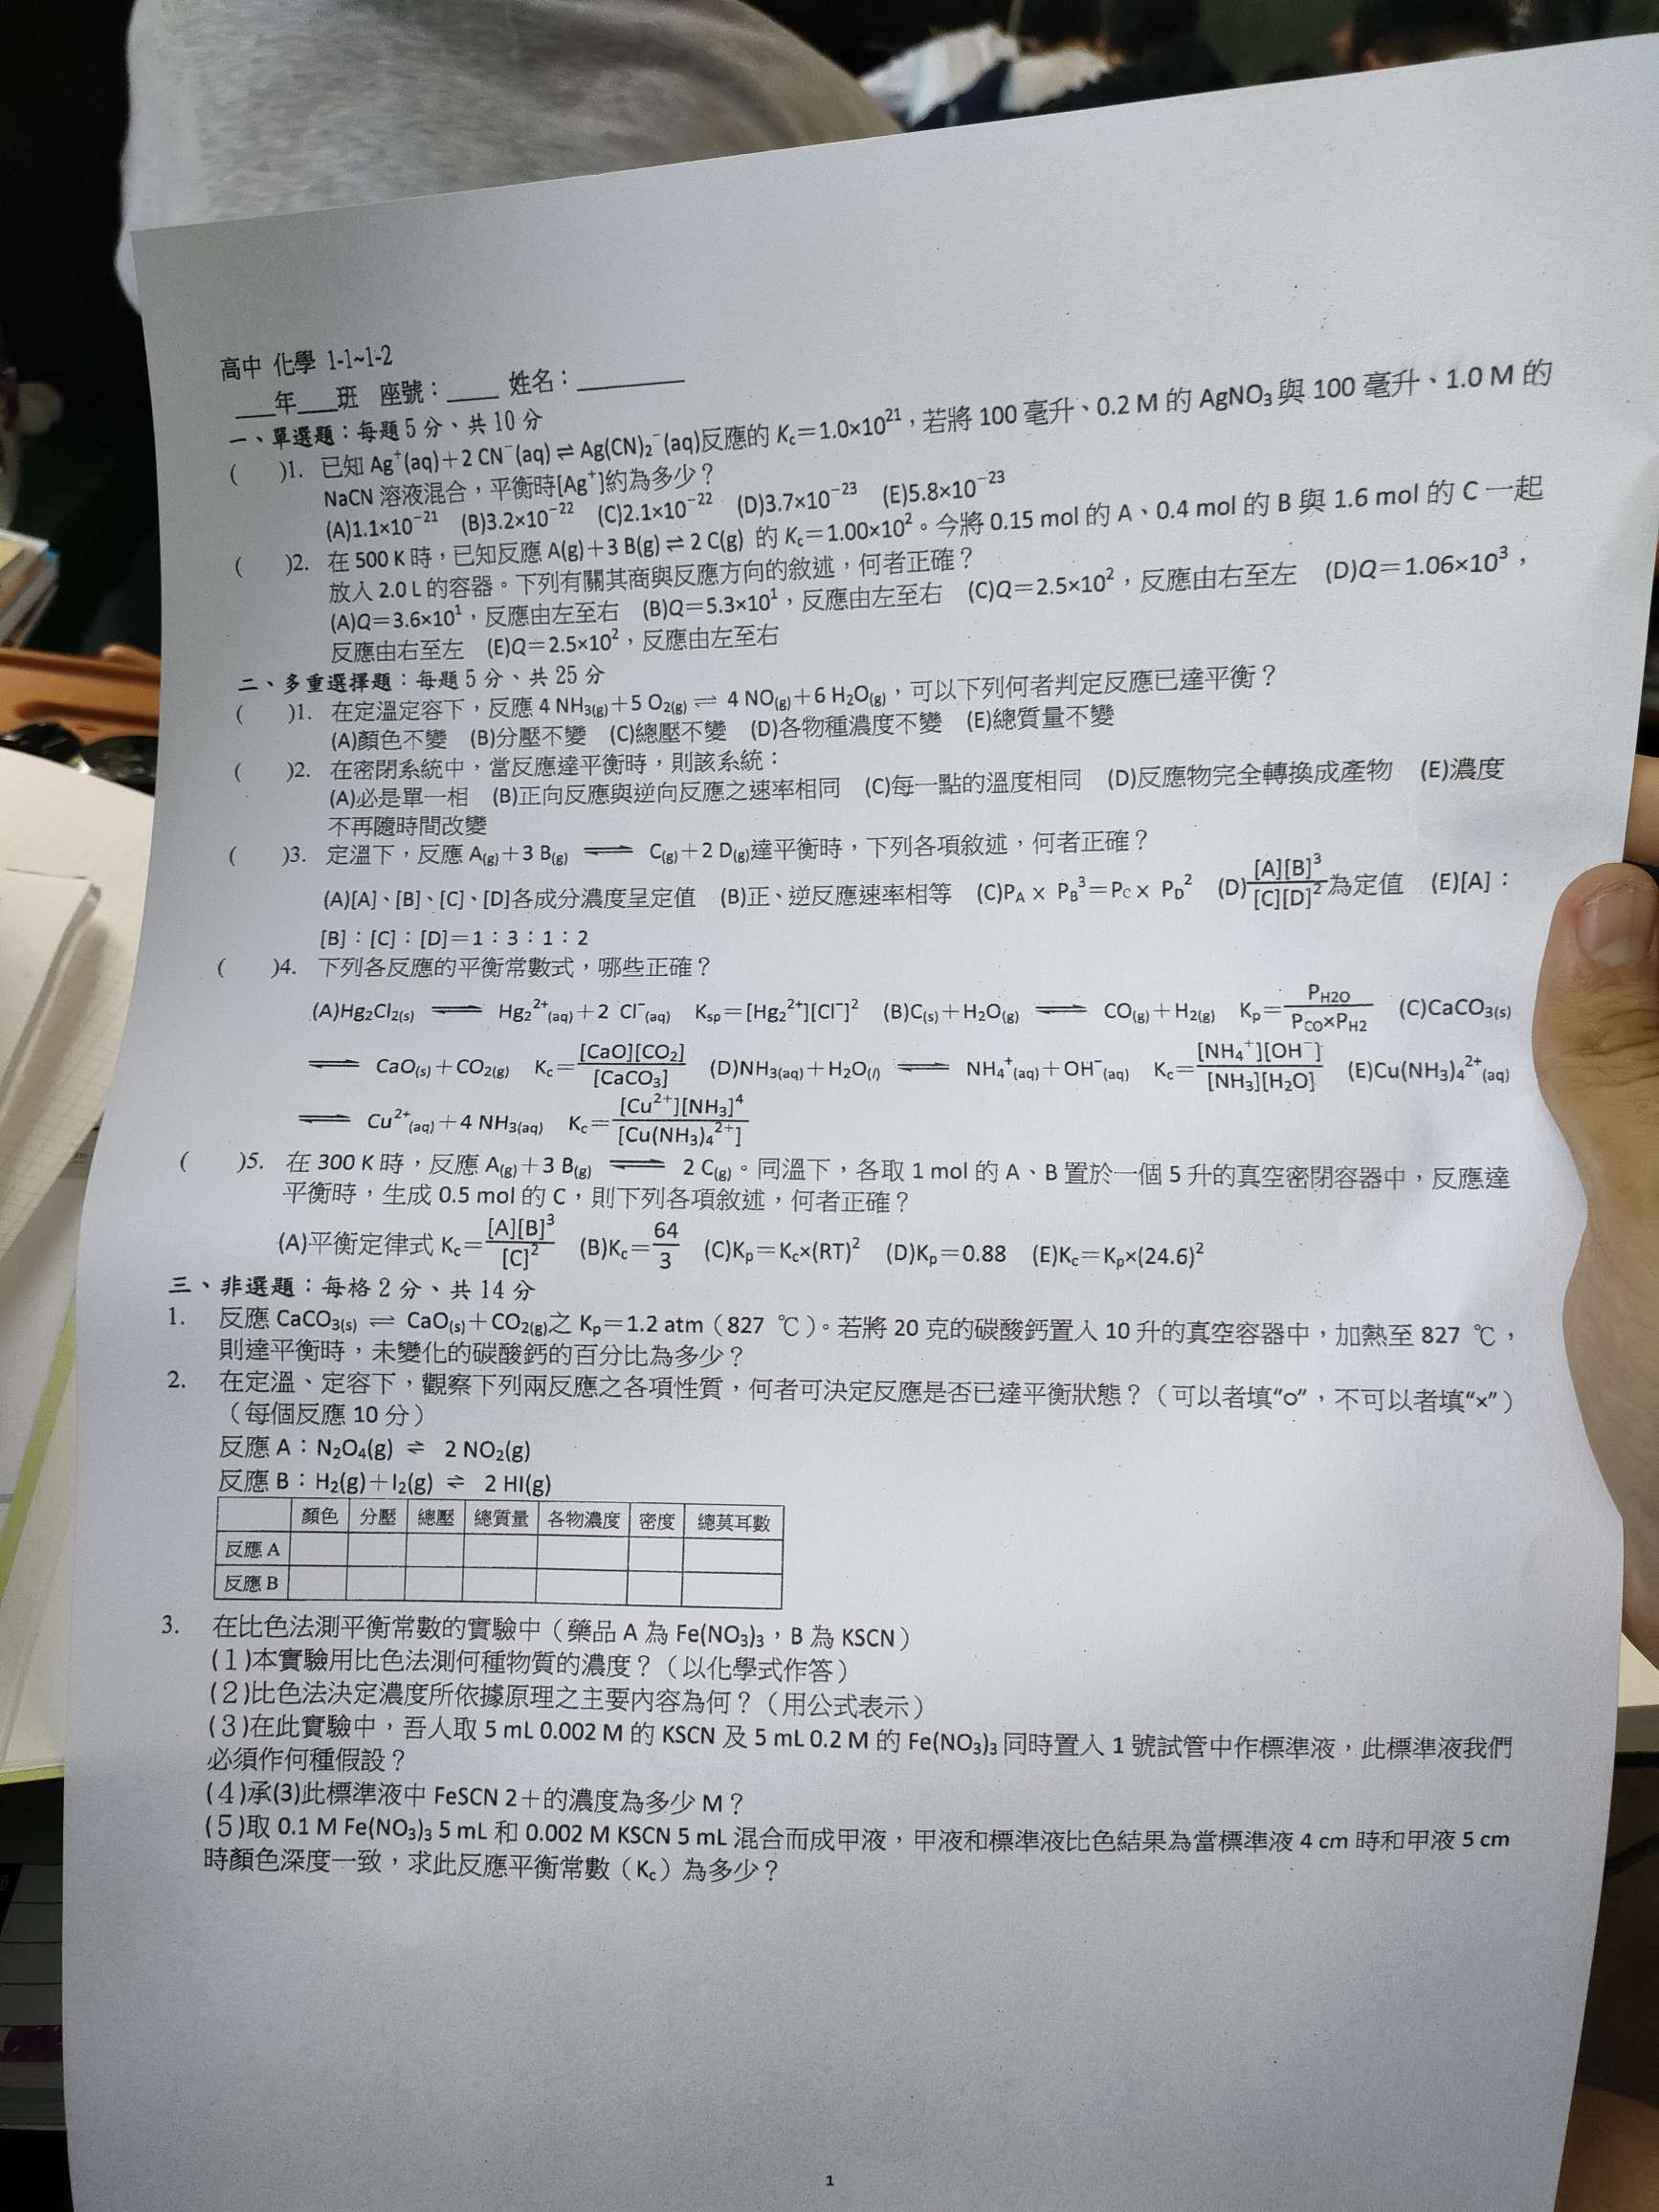 高中 化學 1-1~1-2
___年___班 座號：____ 姓名：________
一、單選題：每題 5 分、共 10 分
( )1. 已知 Ag⁺(aq)＋2 CN⁻(aq) ⇌ Ag(CN)₂⁻(aq)反應的 Kc＝1.0×10²¹，若將 100 毫升、0.2 M 的 AgNO₃ 與 100 毫升、1.0 M 的
NaCN 溶液混合，平衡時[Ag⁺]約為多少？
(A)1.1×10⁻²¹ (B)3.2×10⁻²² (C)2.1×10⁻²² (D)3.7×10⁻²³ (E)5.8×10⁻²³
( )2. 在 500 K 時，已知反應 A(g)＋3 B(g) ⇌ 2 C(g) 的 Kc＝1.00×10²。今將 0.15 mol 的 A、0.4 mol 的 B 與 1.6 mol 的 C 一起
放入 2.0 L 的容器。下列有關其商與反應方向的敘述，何者正確？
(A)Q＝3.6×10¹，反應由左至右 (B)Q＝5.3×10¹，反應由左至右 (C)Q＝2.5×10²，反應由右至左 (D)Q＝1.06×10³，
反應由右至左 (E)Q＝2.5×10²，反應由左至右
二、多重選擇題：每題 5 分、共 25 分
( )1. 在定溫定容下，反應 4 NH₃(g)＋5 O₂(g) ⇌ 4 NO(g)＋6 H₂O(g)，可以下列何者判定反應已達平衡？
(A)顏色不變 (B)分壓不變 (C)總壓不變 (D)各物種濃度不變 (E)總質量不變
( )2. 在密閉系統中，當反應達平衡時，則該系統：
(A)必是單一相 (B)正向反應與逆向反應之速率相同 (C)每一點的溫度相同 (D)反應物完全轉換成產物 (E)濃度
不再隨時間改變
( )3. 定溫下，反應 A(g)＋3 B(g) ⇌ C(g)＋2 D(g)達平衡時，下列各項敘述，何者正確？
(A)[A]、[B]、[C]、[D]各成分濃度呈定值 (B)正、逆反應速率相等 (C)PA × PB³＝PC × PD² (D)[A][B]³/[C][D]²為定值 (E)[A]：
[B]：[C]：[D]＝1：3：1：2
( )4. 下列各反應的平衡常數式，哪些正確？
(A)Hg₂Cl₂(s) ⇌ Hg₂²⁺(aq)＋2 Cl⁻(aq) Ksp＝[Hg₂²⁺][Cl⁻]² (B)C(s)＋H₂O(g) ⇌ CO(g)＋H₂(g) Kp＝PH2O/PCO×PH2 (C)CaCO₃(s)
⇌ CaO(s)＋CO₂(g) Kc＝[CaO][CO₂]/[CaCO₃] (D)NH₃(aq)＋H₂O(l) ⇌ NH₄⁺(aq)＋OH⁻(aq) Kc＝[NH₄⁺][OH⁻]/[NH₃][H₂O] (E)Cu(NH₃)₄²⁺(aq)
⇌ Cu²⁺(aq)＋4 NH₃(aq) Kc＝[Cu²⁺][NH₃]⁴/[Cu(NH₃)₄²⁺]
( )5. 在 300 K 時，反應 A(g)＋3 B(g) ⇌ 2 C(g)。同溫下，各取 1 mol 的 A、B 置於一個 5 升的真空密閉容器中，反應達
平衡時，生成 0.5 mol 的 C，則下列各項敘述，何者正確？
(A)平衡定律式 Kc＝[A][B]³/[C]² (B)Kc＝64/3 (C)Kp＝Kc×(RT)² (D)Kp＝0.88 (E)Kc＝Kp×(24.6)²
三、非選題：每格 2 分、共 14 分
1. 反應 CaCO₃(s) ⇌ CaO(s)＋CO₂(g)之 Kp＝1.2 atm（827 ℃）。若將 20 克的碳酸鈣置入 10 升的真空容器中，加熱至 827 ℃，
則達平衡時，未變化的碳酸鈣的百分比為多少？
2. 在定溫、定容下，觀察下列兩反應之各項性質，何者可決定反應是否已達平衡狀態？（可以者填“o”，不可以者填“×”）
（每個反應 10 分）
反應 A：N₂O₄(g) ⇌ 2 NO₂(g)
反應 B：H₂(g)＋I₂(g) ⇌ 2 HI(g)
顏色 分壓 總壓 總質量 各物濃度 密度 總莫耳數
反應 A
反應 B
3. 在比色法測平衡常數的實驗中（藥品 A 為 Fe(NO₃)₃，B 為 KSCN）
(１)本實驗用比色法測何種物質的濃度？（以化學式作答）
(２)比色法決定濃度所依據原理之主要內容為何？（用公式表示）
(３)在此實驗中，吾人取 5 mL 0.002 M 的 KSCN 及 5 mL 0.2 M 的 Fe(NO₃)₃ 同時置入 1 號試管中作標準液，此標準液我們
必須作何種假設？
(４)承(3)此標準液中 FeSCN 2＋的濃度為多少 M？
(５)取 0.1 M Fe(NO₃)₃ 5 mL 和 0.002 M KSCN 5 mL 混合而成甲液，甲液和標準液比色結果為當標準液 4 cm 時和甲液 5 cm
時顏色深度一致，求此反應平衡常數（Kc）為多少？
1